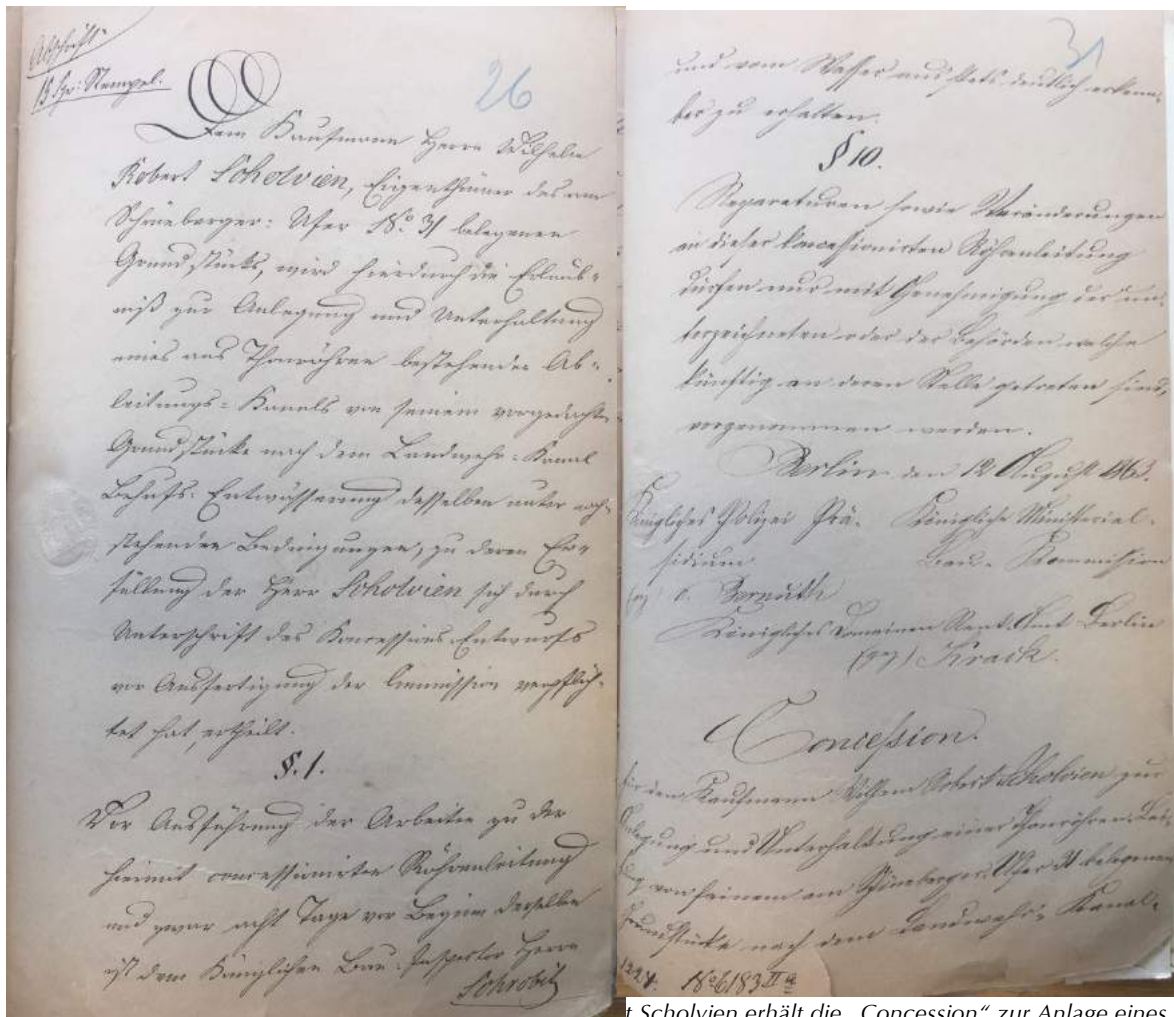 Abschrift
15 Sgr. Stempel.
26
Dem Kaufmann Herrn Wilhelm
Robert Scholvien, Eigenthümer des am
Schöneberger: Ufer No. 31 belegenen
Grundstücks, wird hierdurch die Erlaub-
niß zur Anlegung und Unterhaltung
eines aus Thonröhren bestehenden Ab-
leitungs-Kanals von seinem vorgedachten
Grundstücke nach dem Landwehr-Kanal
Behufs Entwässerung desselben unter nach-
stehenden Bedingungen, zu deren Er-
füllung der Herr Scholvien sich durch
Unterschrift des Koncessions-Entwurfs
vor Ausfertigung der verpflich-
tet hat, ertheilt.
§. 1.
Vor Ausführung der Arbeiten zu der
hiermit concessionirten Röhrenleitung
und zwar acht Tage vor Beginn derselben
ist dem Königlichen Bau-Inspector Herrn
31
und vom Wasser aus stets deutlich erkenn-
bar zu erhalten.
§ 10.
Reparaturen sowie Veränderungen
an dieser koncessionirten Röhrenleitung
dürfen nur mit Genehmigung der un-
terzeichneten oder der Behörden welche
künftig an deren Stelle getreten sind,
vorgenommen werden.
Berlin den 12 August 1863.
Königliches Polizei Prä- Königliche Ministerial-
sidium Bau-Kommission
(gz) v. Bernuth
Königliches Domainen Rent-Amt Berlin
(gz) Krack.
Concession.
für den Kaufmann Wilhelm Robert Scholvien zur
Anlegung und Unterhaltung einer Thonröhren-Lei-
tung von seinem am Schöneberger Ufer 31 belegenen
Grundstücke nach dem Landwehr-Kanal.
No 6183 II a
t Scholvien erhält die „Concession“ zur Anlage eines